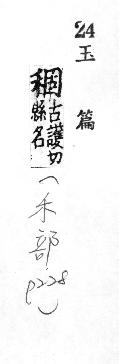 24
玉篇
稒古護切縣名
(禾部
p228)